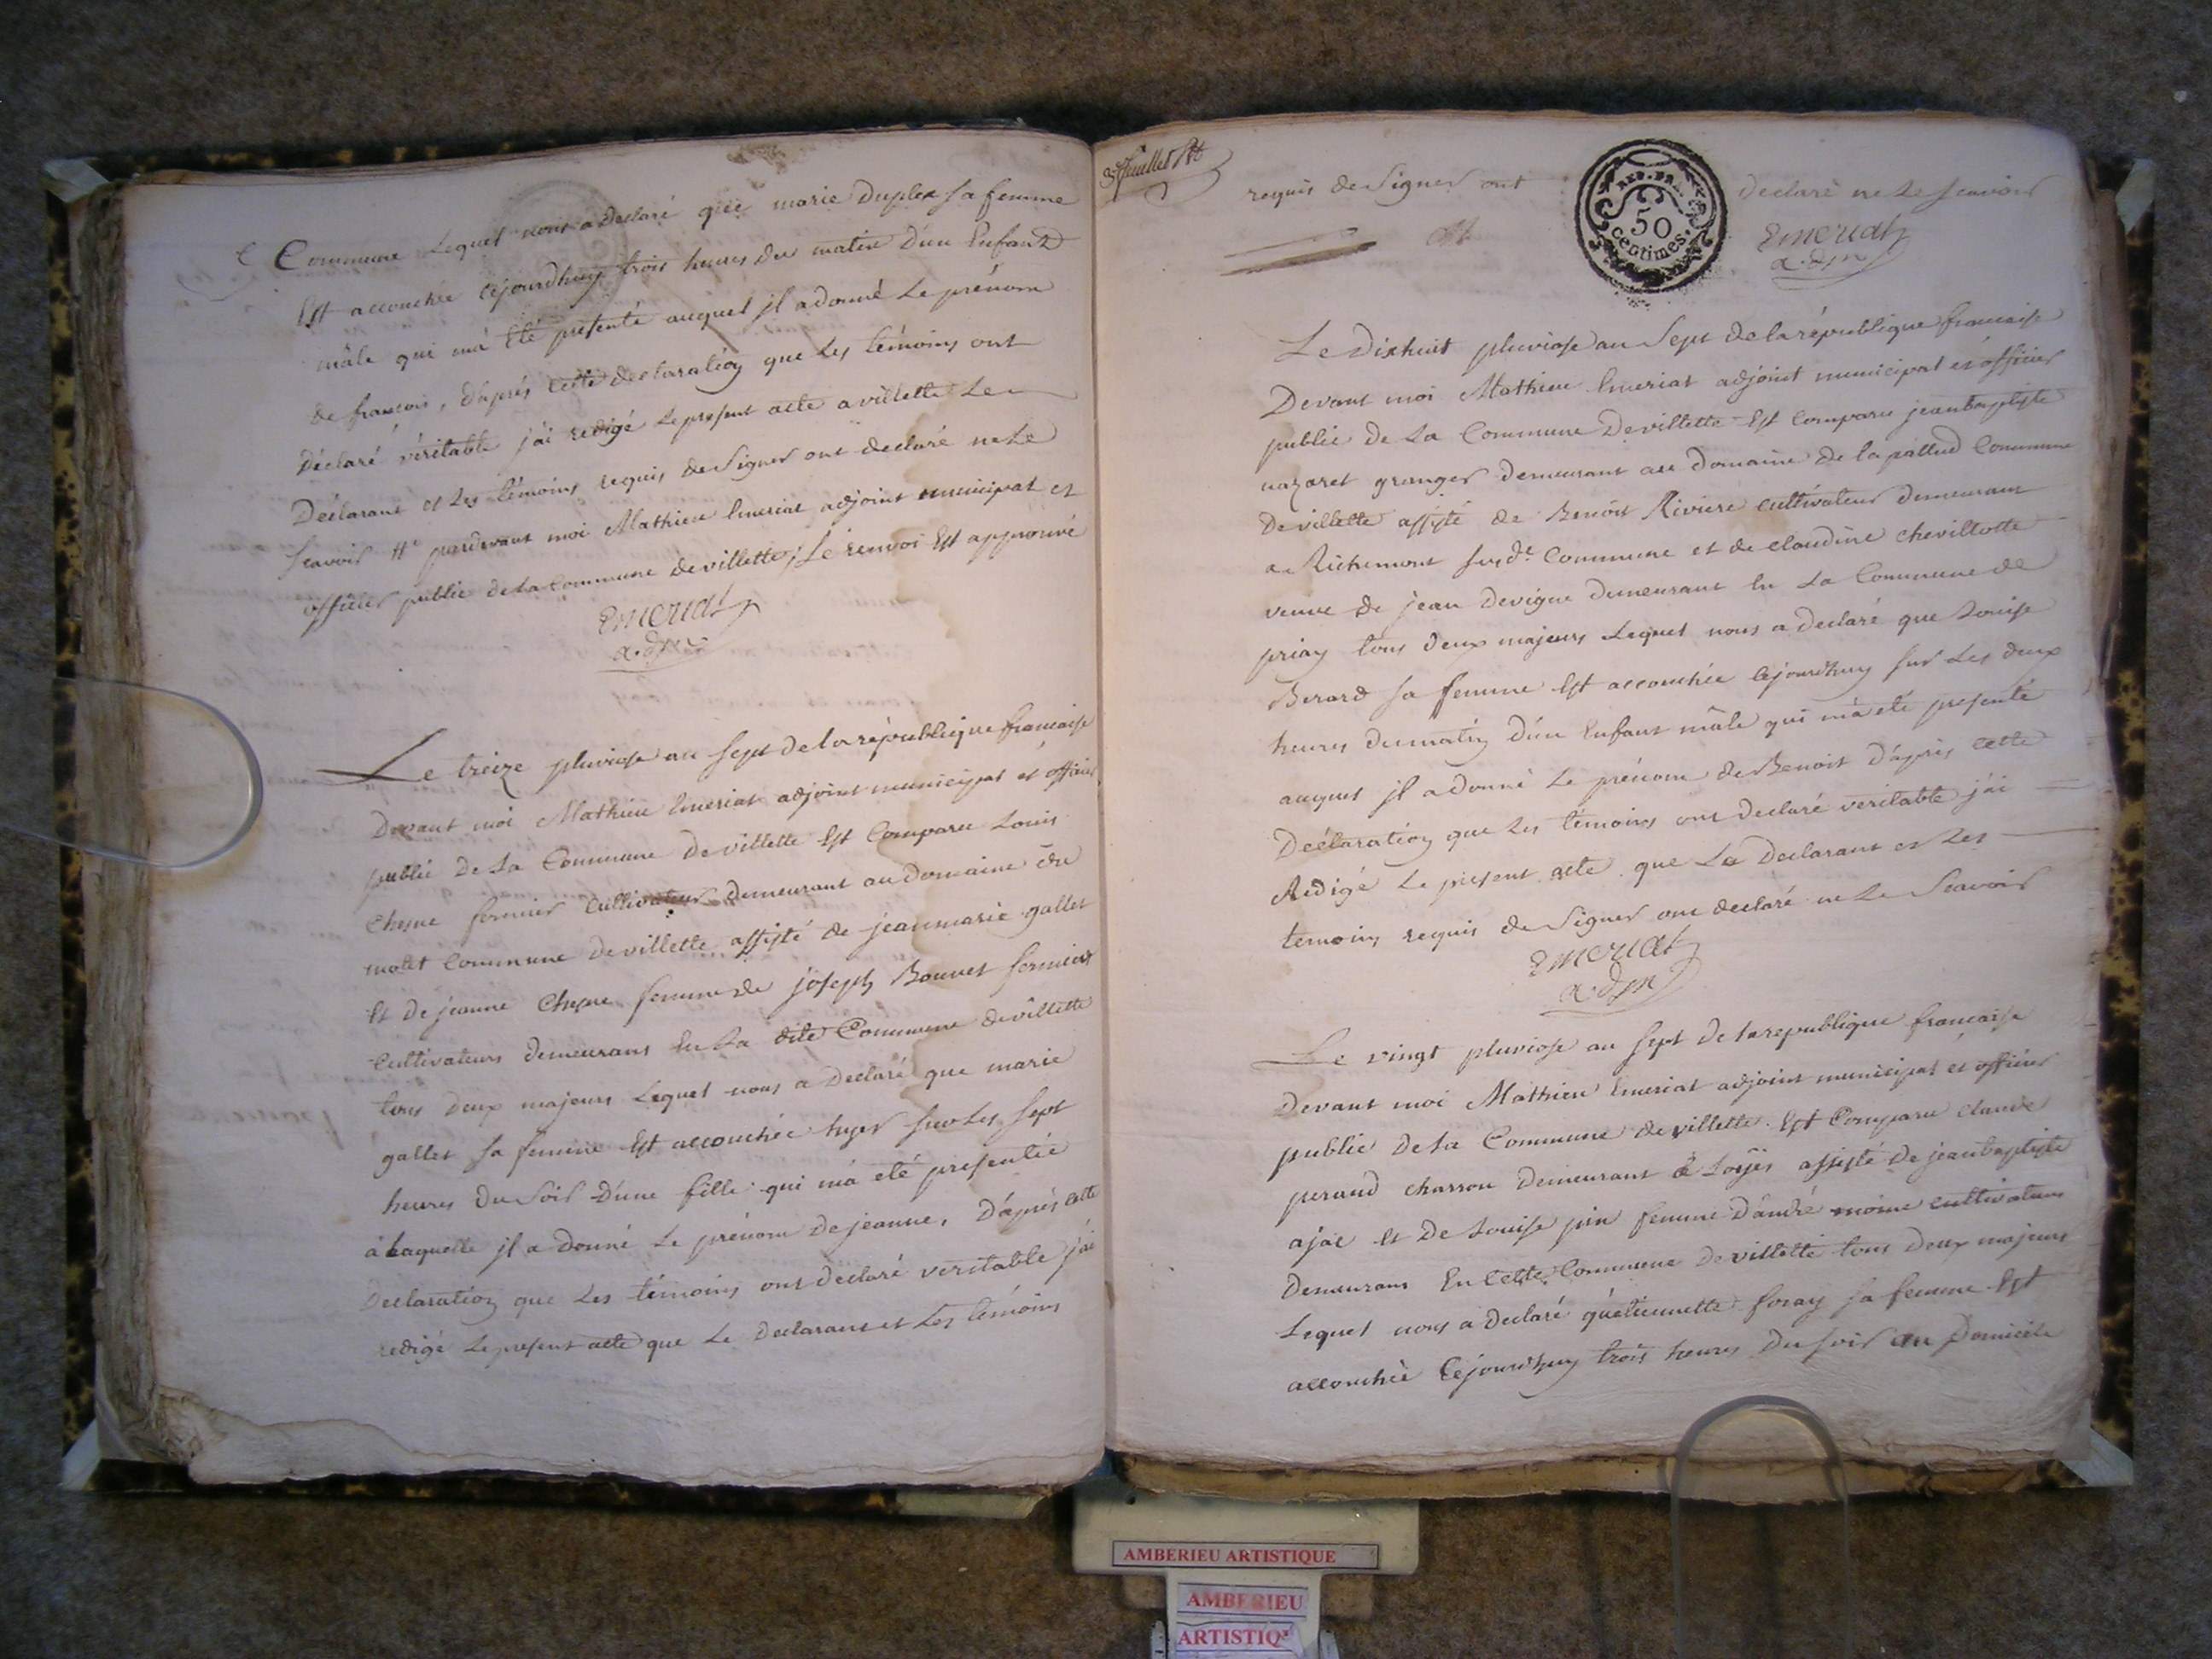 Commune Lequel nous a declaré que marie Duplex sa femme
Est accouchée cejourdhuy trois heures du matin d'un Enfant
mâle qui m'a Eté presenté auquel jl a donné Le prénom
de francois, d'aprés cette declaration que Les témoins ont
déclaré véritable j'ai redigé Le present acte a villette Le
Déclarant et Les témoins requis de Signer ont declaré ne Le
Scavoir pardevant moi Mathieu Emeriat adjoint municipal et
officier public de La Commune de villette, Le renvoi Est approuvé
Emeriat
a.d.m
Le treize pluviose an Sept de la république francaise
Devant moi Mathieu Emeriat adjoint municipal et officier
public de La Commune de villette Est Comparu Louis
Chesne fermier Cultivateur demeurant au Domaine du
molet Commune de villette assisté de jeanmarie gallet
Et De jeanne Chesne femme de joseph Bonnet fermiers
Cultivateurs demeurans En La dite Commune de villette
tous deux majeurs Lequel nous a Declaré que marie
gallet Sa femme Est accouchée hyer Sur Les Sept
heures Du Soir D'une fille qui m'a été presentée
à Laquelle jl a Donné Le prénom de jeanne, D'aprés cette
Declaration que Les témoins ont declaré veritable j'ai
redigé Le present acte que Le Declarant et Les témoins
requis de Signer ont declaré ne Le Scavoir
REP. FRA.
50
centimes.
Emeriat
a.d.m
Le Dixhuit pluviose an Sept de la république francaise
Devant moi Mathieu Emeriat adjoint municipal et officier
public de La Commune De villette Est Comparu jeanbaptiste
nazaret granger demeurant au Domaine de la pallud Commune
De villette assisté de Benoit Riviere cultivateur demeurant
a Richemont susd.e Commune et de claudine chevillotte
veuve de jean Devigne demeurant En La Commune de
priay tous deux majeurs Lequel nous a declaré que Louise
Berard sa femme Est accouchée cejourdhuy sur Les deux
heures du matin D'un Enfant mâle qui m'a été presenté
auquel jl a Donné Le prénom de Benoit D'aprés cette
Déclaration que Les témoins ont declaré veritable j'ai
Redigé Le present acte que Le Declarant et Les
temoins requis de Signer ont declaré ne Le Scavoir
Emeriat
a.d.m
Le vingt pluviose an sept de la republique francaise
Devant moi Mathieu Emeriat adjoint municipal et officier
public de La Commune de villette Est Comparu claude
peraud charron Demeurant à Loyes assisté de jeanbaptiste
ajac Et De Louise pin femme D'andré moine cultivateurs
Demeurans En Cette Commune De villette tous deux majeurs
Lequel nous a Declaré qu'etiennette foray sa femme Est
accouchée Cejourdhuy trois heures Du soir au Domicile
AMBERIEU ARTISTIQUE
AMBERIEU
ARTISTIQ